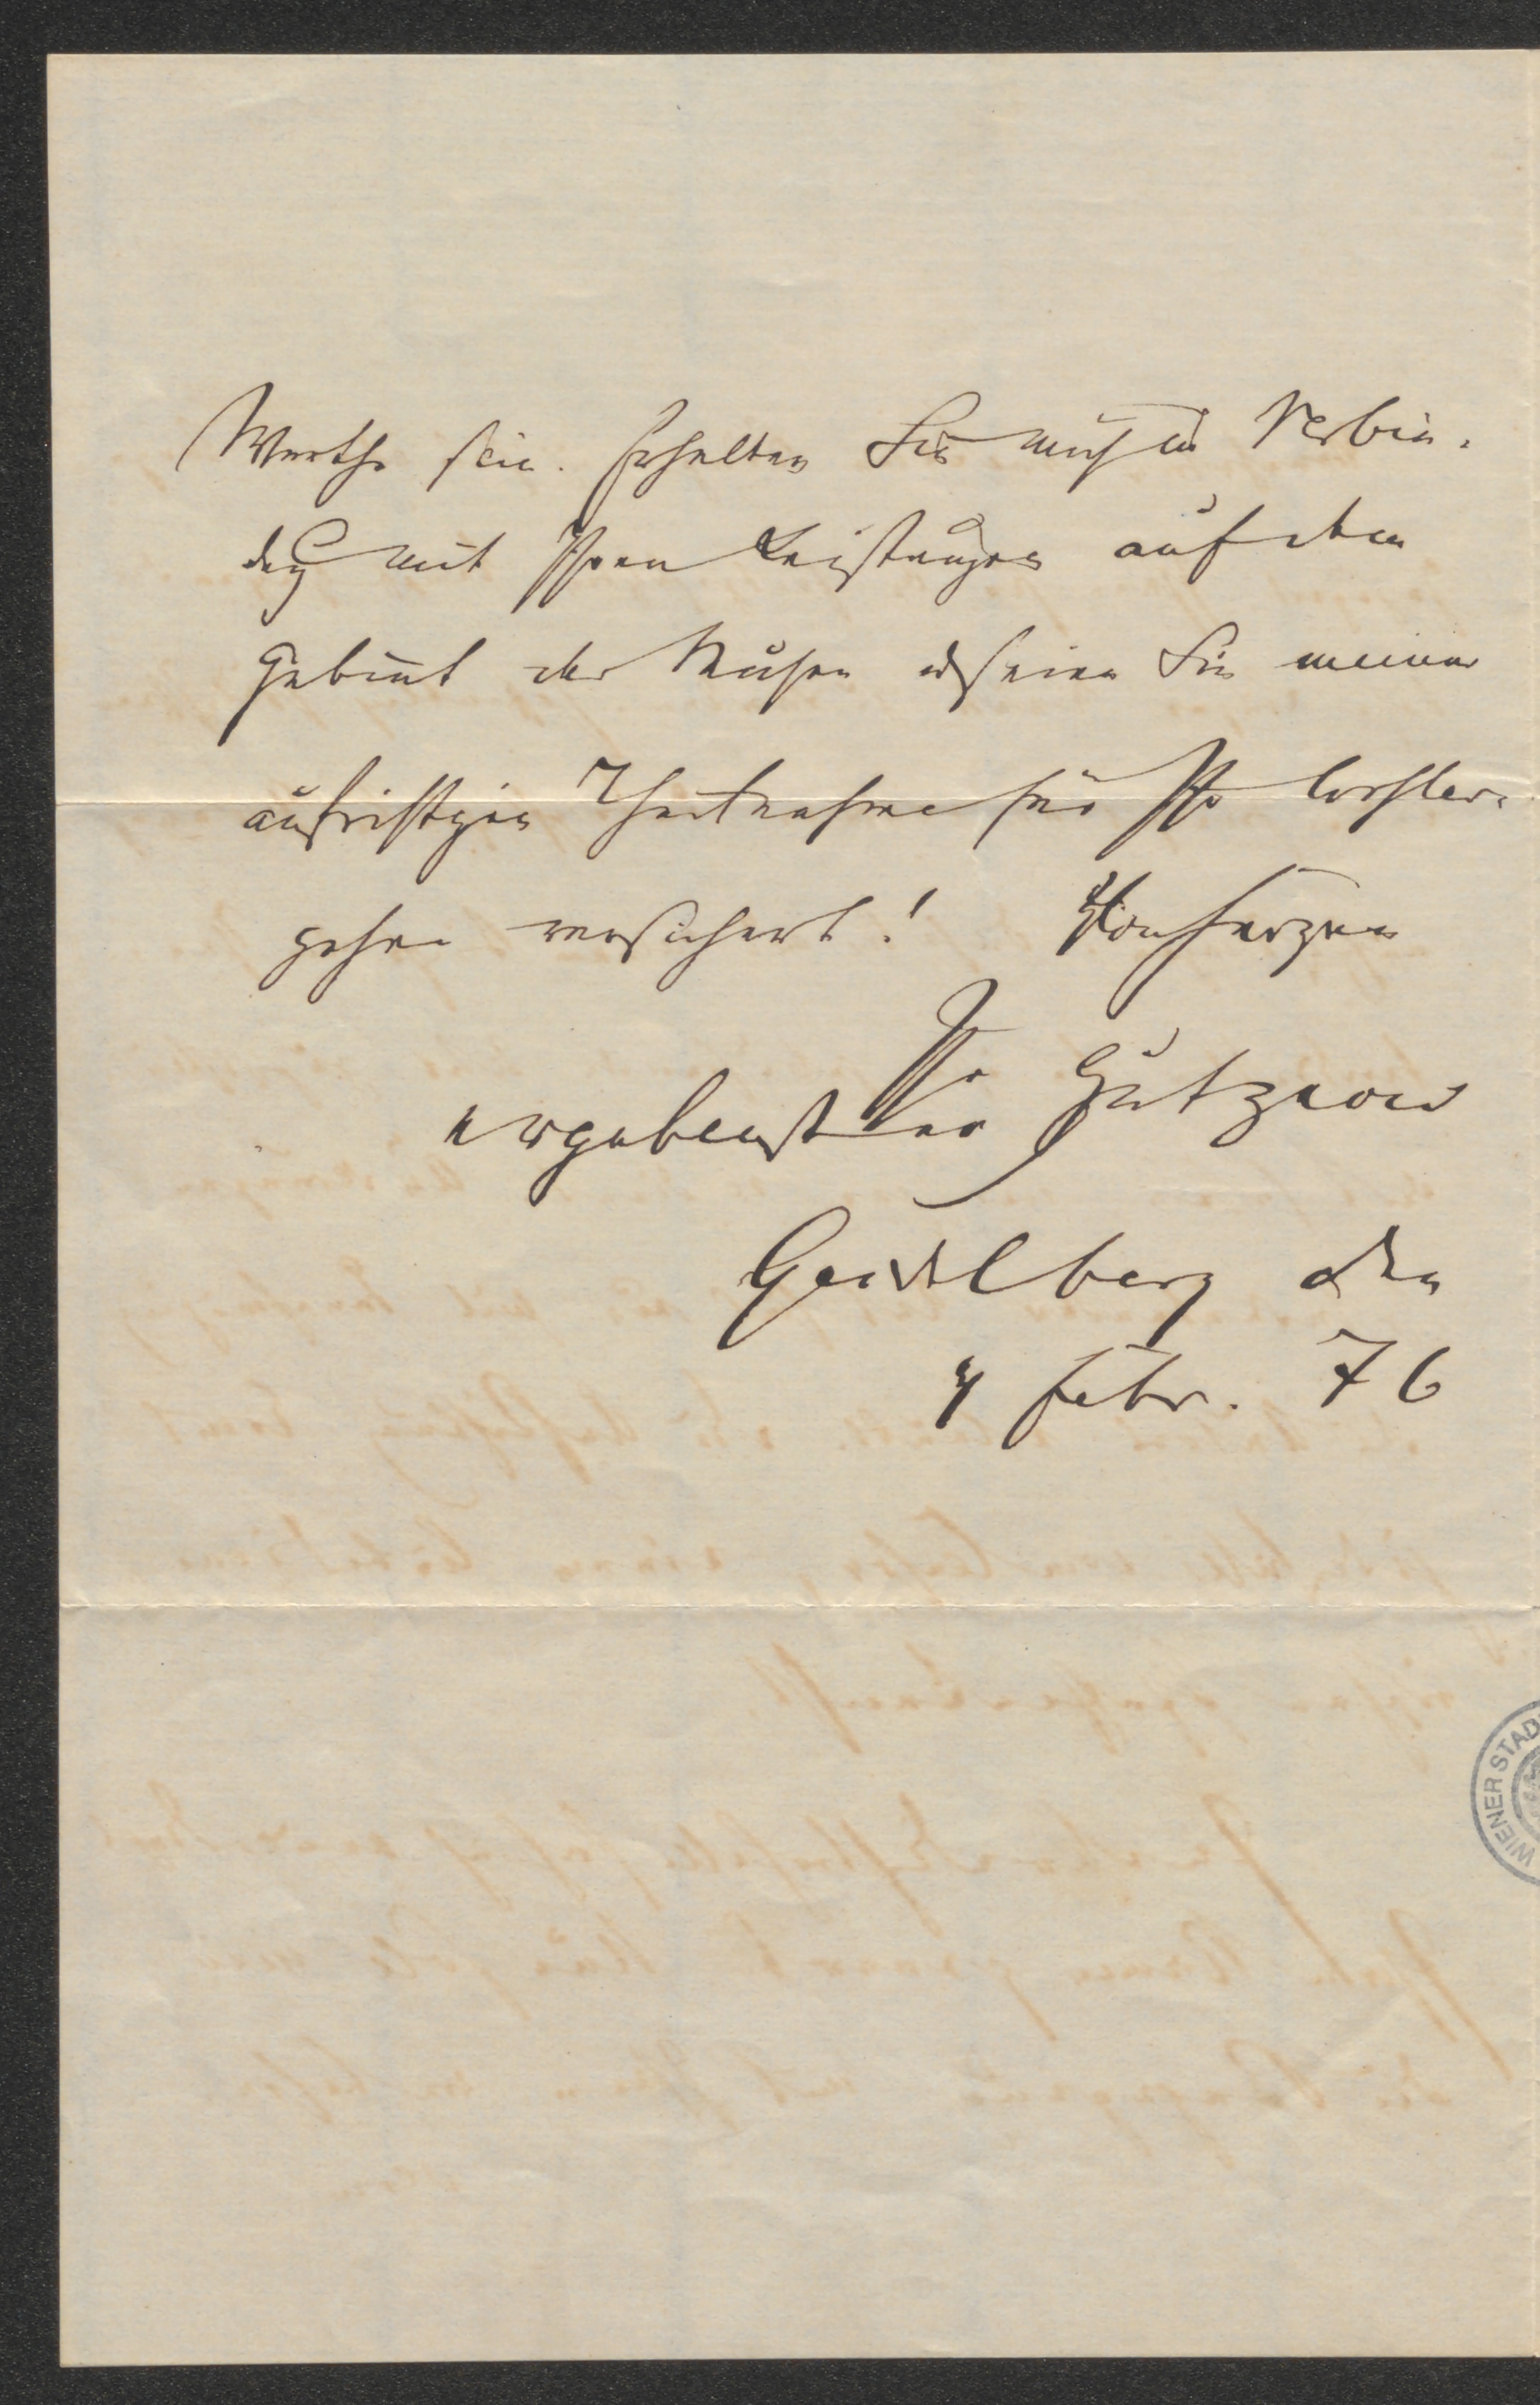 Werthe sein. Erhalten Sie mich in Verbin-
dg mit Ihren Leistungen auf dem
Gebiet der Musen u seien Sie meiner
aufrichtigen Theilnahme für Ihr Wohler-
gehen versichert! Von Herzen
Ihr
ergebenster Gutzkow
Heidelberg den
4 Febr. 76
WIENER STAD